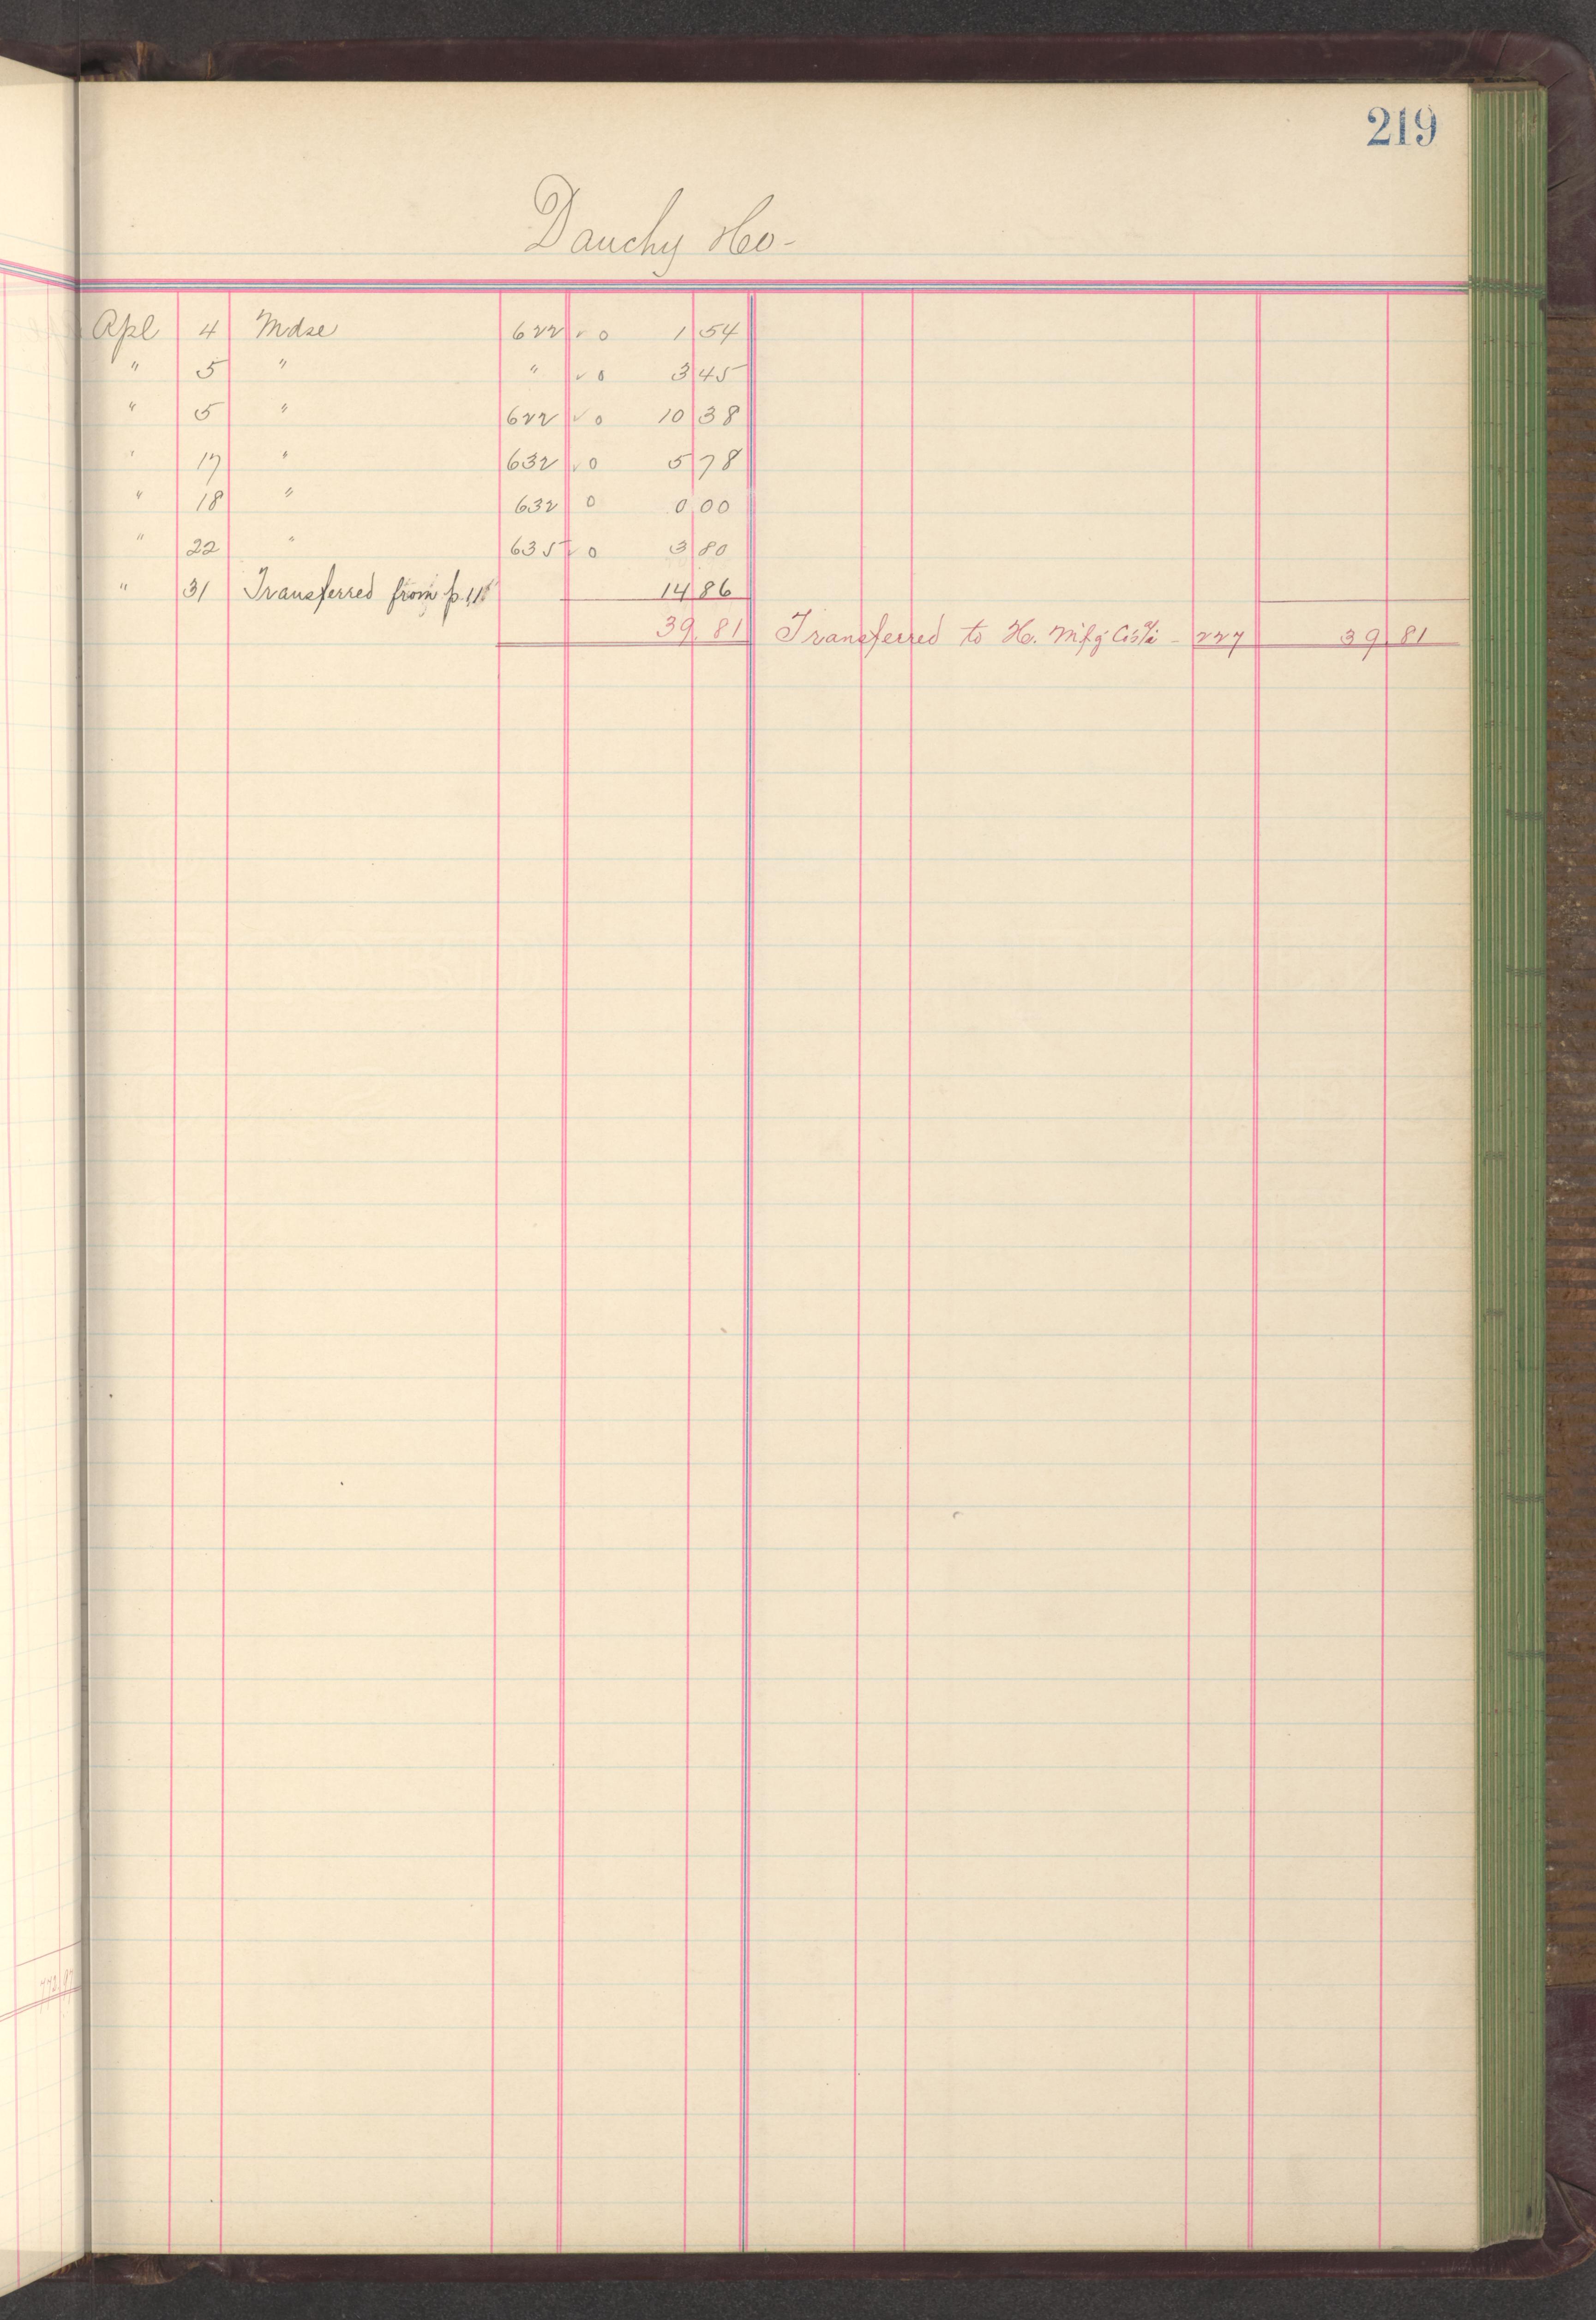 219
Dauchy Ho-
Apl 4 Mdse 622 ✓ o 1 54
" 5 " " ✓ o 3 45
" 5 " 622 ✓ o 10 38
" 17 " 632 ✓ o 5 78
" 18 " 632 o 0 00
" 22 " 635 ✓ o 3 80
" 31 Transferred from p 11 14 86
39.81 Transferred to H. Mfg Co's a/c - 227 39.81
772.97